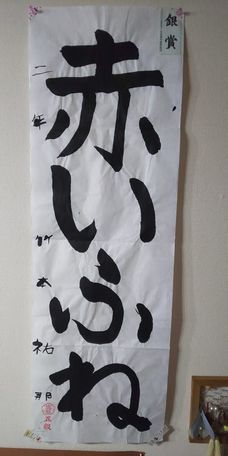 赤いふね
二年 竹本祐那
銀賞
五級